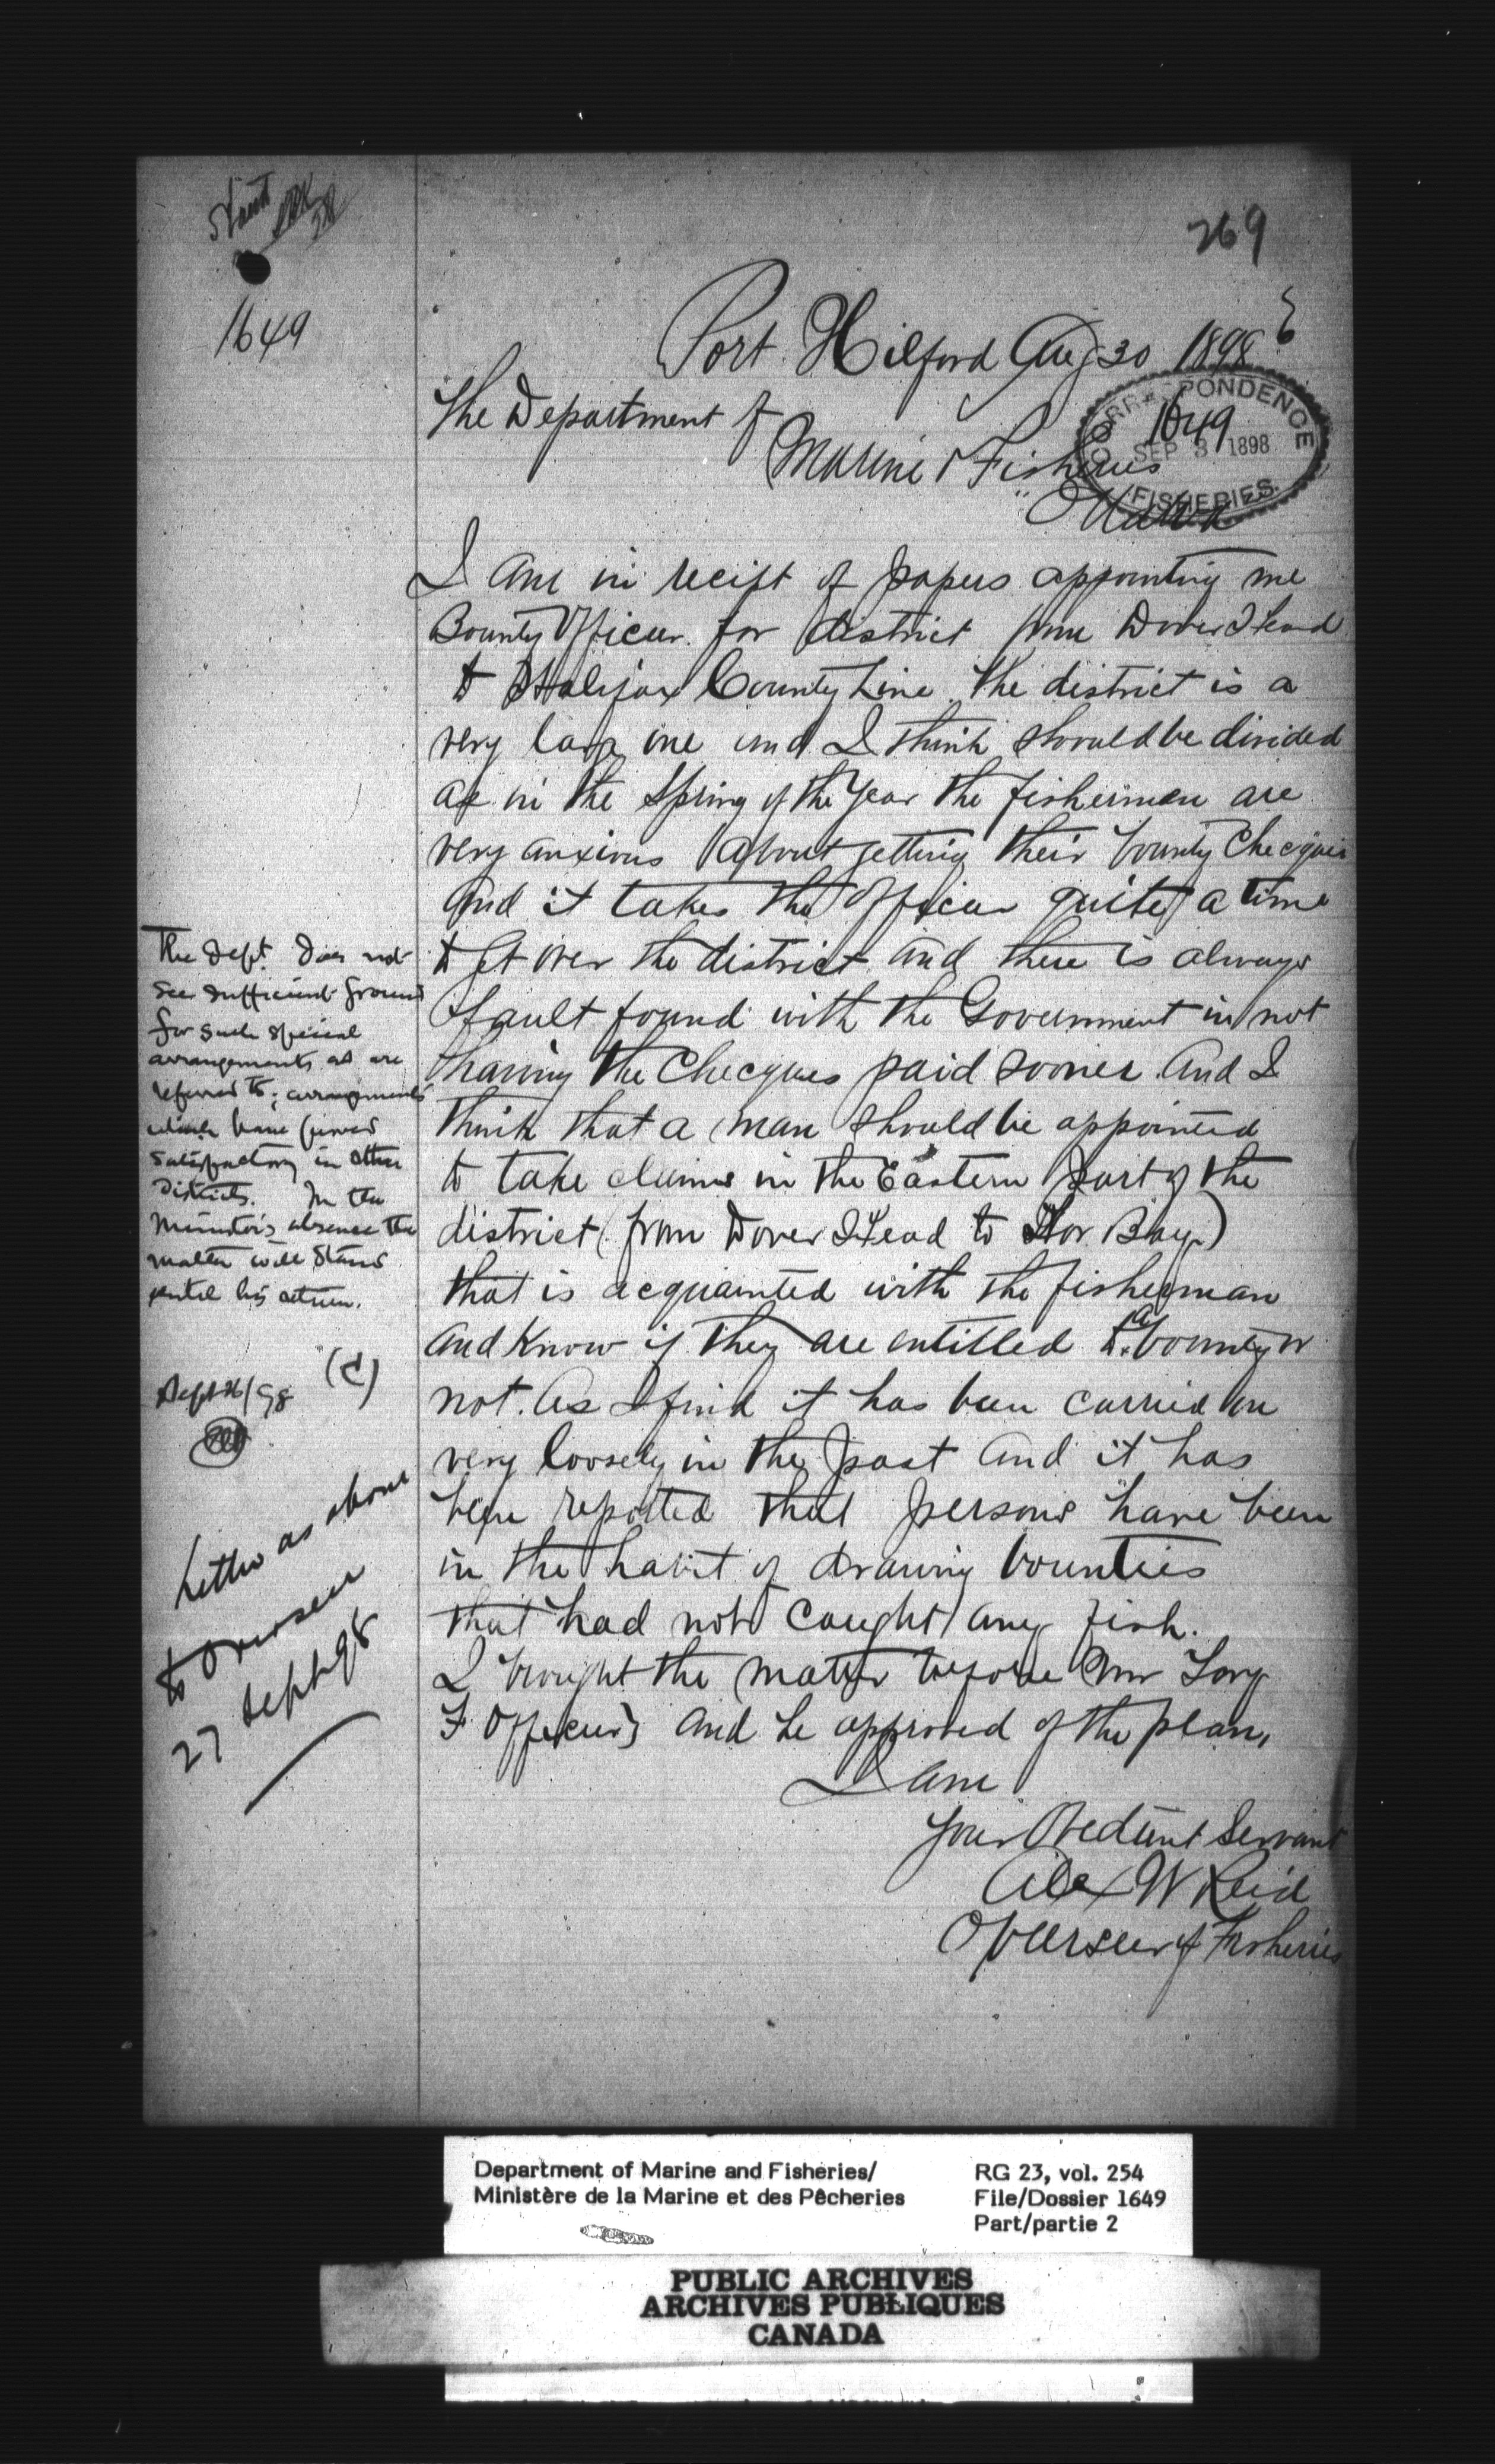 269
1649
Port Hilford Aug 30 1898
The Department of
Marine & Fisheries
Ottawa
CORRESPONDENCE
1649
SEP 3 1898
FISHERIES
I am in reciept of papers appointing me
Bounty Officer for district from Dover Head
to Halifax County Line. The district is a
very larg one and I think should be divided
as in the Spring of the Year the fishermen are
very anxious about getting their bounty Checques
and it takes the Officer quite a time
to get over the district and there is always
fault found with the Government in not
having the Checques paid sooner. And I
think that a man should be appointed
to take claims in the Eastern part of the
district (from Dover Head to Tor Bay)
that is acquainted with the fisherman
and Know if they are entitled to a bounty or
not. As I find it has been carried on
very loosely in the past and it has
been reported that persons have been
in the habit of drawing bounties
that had not caught any fish.
I brought the matter before Mr
F Officer and he approved of the plan,
I am
Your Obediant Servant
Alex W Reid
Overseer of Fisheries
The Dept. does not
see sufficient ground
for such special
arrangements as are
referred to; arrangements
which have proved
satisfactory in other
districts. In the
Minister's absence the
matter will stand
until his return.
(C)
Sept 26/98
Letter as above
to Overseer
27 Sept 98
Department of Marine and Fisheries/
Ministère de la Marine et des Pêcheries
RG 23, vol. 254
File/Dossier 1649
Part/partie 2
PUBLIC ARCHIVES
ARCHIVES PUBLIQUES
CANADA